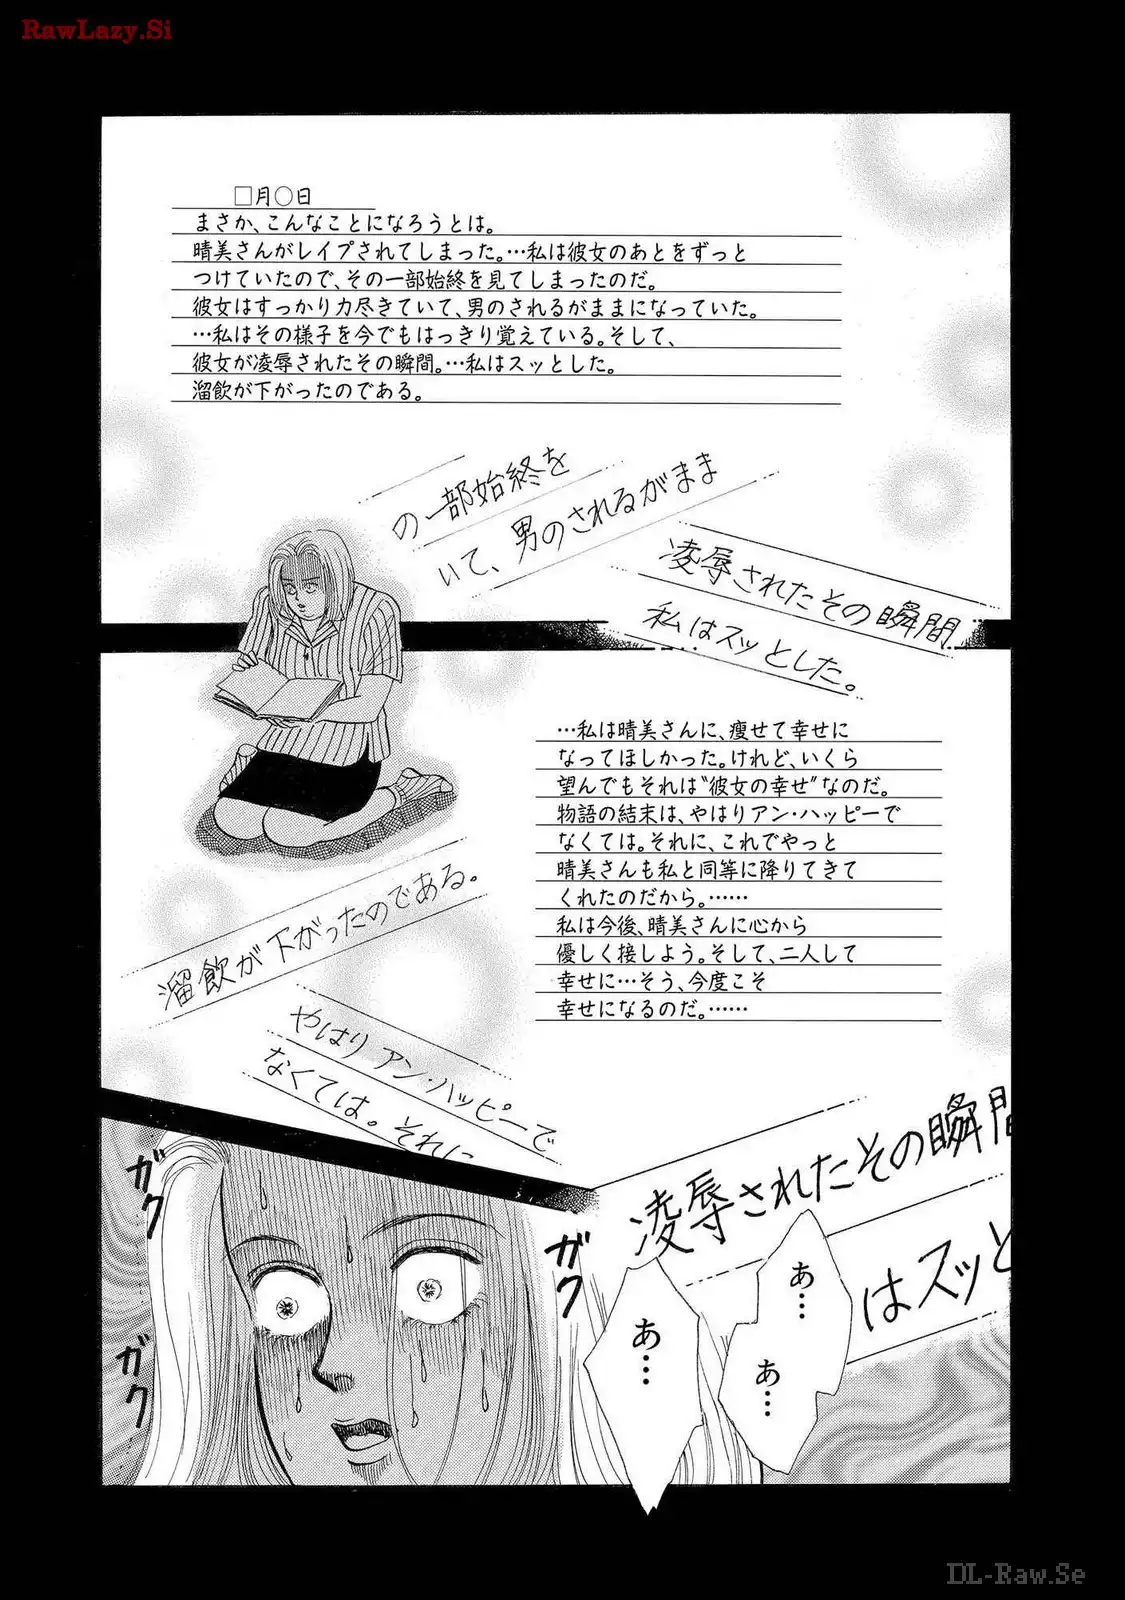 RawLazy.Si
□月○日
まさか、こんなことになろうとは。
晴美さんがレイプされてしまった。…私は彼女のあとをずっと
つけていたので、その一部始終を見てしまったのだ。
彼女はすっかり力尽きていて、男のされるがままになっていた。
…私はその様子を今でもはっきり覚えている。そして、
彼女が凌辱されたその瞬間。…私はスッとした。
溜飲が下がったのである。
の一部始終を
いて、男のされるがまま
凌辱されたその瞬間
私はスッとした。
…私は晴美さんに、痩せて幸せに
なってほしかった。けれど、いくら
望んでもそれは“彼女の幸せ”なのだ。
物語の結末は、やはりアン・ハッピーで
なくては。それに、これでやっと
晴美さんも私と同等に降りてきて
くれたのだから。……
私は今後、晴美さんに心から
優しく接しよう。そして、二人して
幸せに…そう、今度こそ
幸せになるのだ。……
溜飲が下がったのである。
やはりアン・ハッピーで
なくては。それに
凌辱されたその瞬間
はスッと
あ…
あ…
あ…
ガク
ガク
ガク
DL-Raw.Se